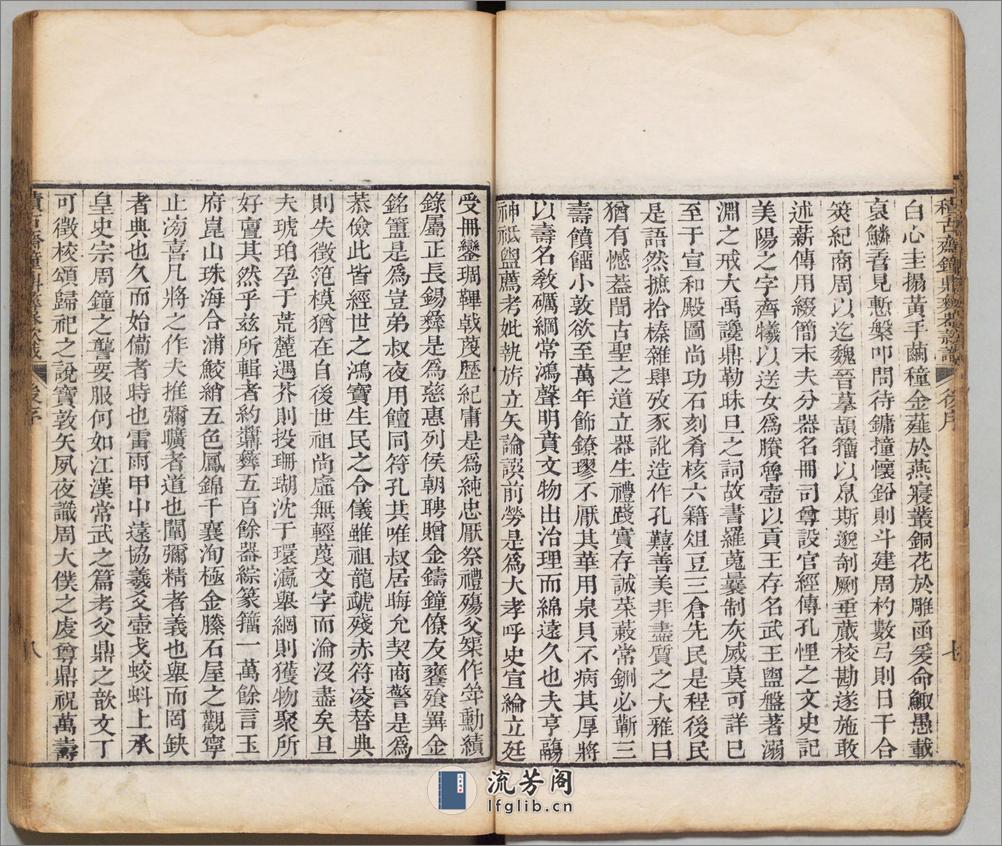 積古齋鐘鼎彝器款識 後序 七
白心圭搨黃手繭穜金薤於燕寢叢銅花於雕函爰命鯫愚載
哀鱗香見慙槃叩問待鏞撞懷鈖則斗建周杓數弓則日干合
筴紀商周以迄魏晉摹頡籀以泉斯邈剞劂垂蕆校勘遂施敢
述薪傳用綴簡末夫分器名冊司尊設官經傳孔悝之文史記
美陽之字齊犧以送女為賸魯壺以貢王存名武王盥盤著溺
淵之戒大禹讒鼎勒昧旦之詞故書羅蒐曩制灰威莫可詳已
至于宣和殿圖尚功石刻肴核六籍俎豆三倉先民是程後民
是語然摭拾榛雜肆攷豕訛造作孔囏善美非盡質之大雅曰
猶有憾蓋聞古聖之道立器生禮踐實存誠菜藙常鉶必蘄三
壽饙餾小敦欲至萬年飾鐐璆不厭其華用泉貝不病其厚將
以壽名敎礪綱常鴻聲明賁文物出治理而綿遠久也夫亨鬺
神祇盥薦考妣執旂立矢論譔前勞是為大孝呼史宣綸立廷
受冊鑾琱鞞戟蔑歷紀庸是為純忠厭祭禮殤父榘作牟勳績
錄屬正長錫彝是為慈惠列侯朝聘贈金鑄鐘僚友饔飧異金
銘簠是為豈弟叔夜用饘同符孔共唯叔居晦允契商警是為
恭儉此皆經世之鴻寶生民之令儀雖祖龍虣殘赤符凌替典
則失徵范模猶在自後世祖尚虛無輕蔑文字而淪沒盡矣且
夫琥珀孕于荒麓遇芥則投珊瑚沈于環瀛舉網則獲物聚所
好亶其然乎茲所輯者約鼎彝五百餘器綜篆籀一萬餘言玉
府崑山珠海合浦鮫綃五色鳳錦千襄洵極金縢石屋之觀寧
止滂喜凡將之作夫推彌曠者道也闡彌精者義也舉而罔缺
者典也久而始備者時也雷雨甲中遠協羲爻壺戈蛟蚪上承
皇史宗周鐘之讋要服何如江漢常武之篇考父鼎之歆文丁
可徵校頌歸祀之說寶敦矢夙夜識周大僕之虔尊鼎祝萬壽
積古齋鐘鼎彝器款識 後序 八
流芳阁
lfglib.cn